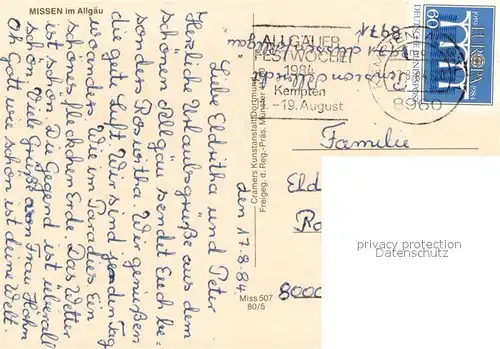 MISSEN im Allgäu
"Liebe Eldritha und Peter"
Herzliche Urlaubsgrüße aus dem
schönen Allgäu sendet Euch be-
sonders Roswitha. Wir genießen
die gute Luft. Wir sind jeden Tag
woanders. Wie im Paradies. Ein
schönes fleckchen Erde. Das Wetter
ist schön. Die Gegend ist überall
schön. Viele Grüße von Frau Höhn
Oh Gott wie schön ist deine Welt.
den 17.8.84.
Cramers Kunstanstalt Dortmund
Freigeg. d. Reg.-Präs. Münster
Miss 507
80/5
ALLGÄUER
FESTWOCHE
1984
Kempten
-19. August
8960
60
EUROPA
DEUTSCHE BUNDESPOST
1959 1984
8971
Familie
Eld
Ro
8000
privacy protection
oldthing.com